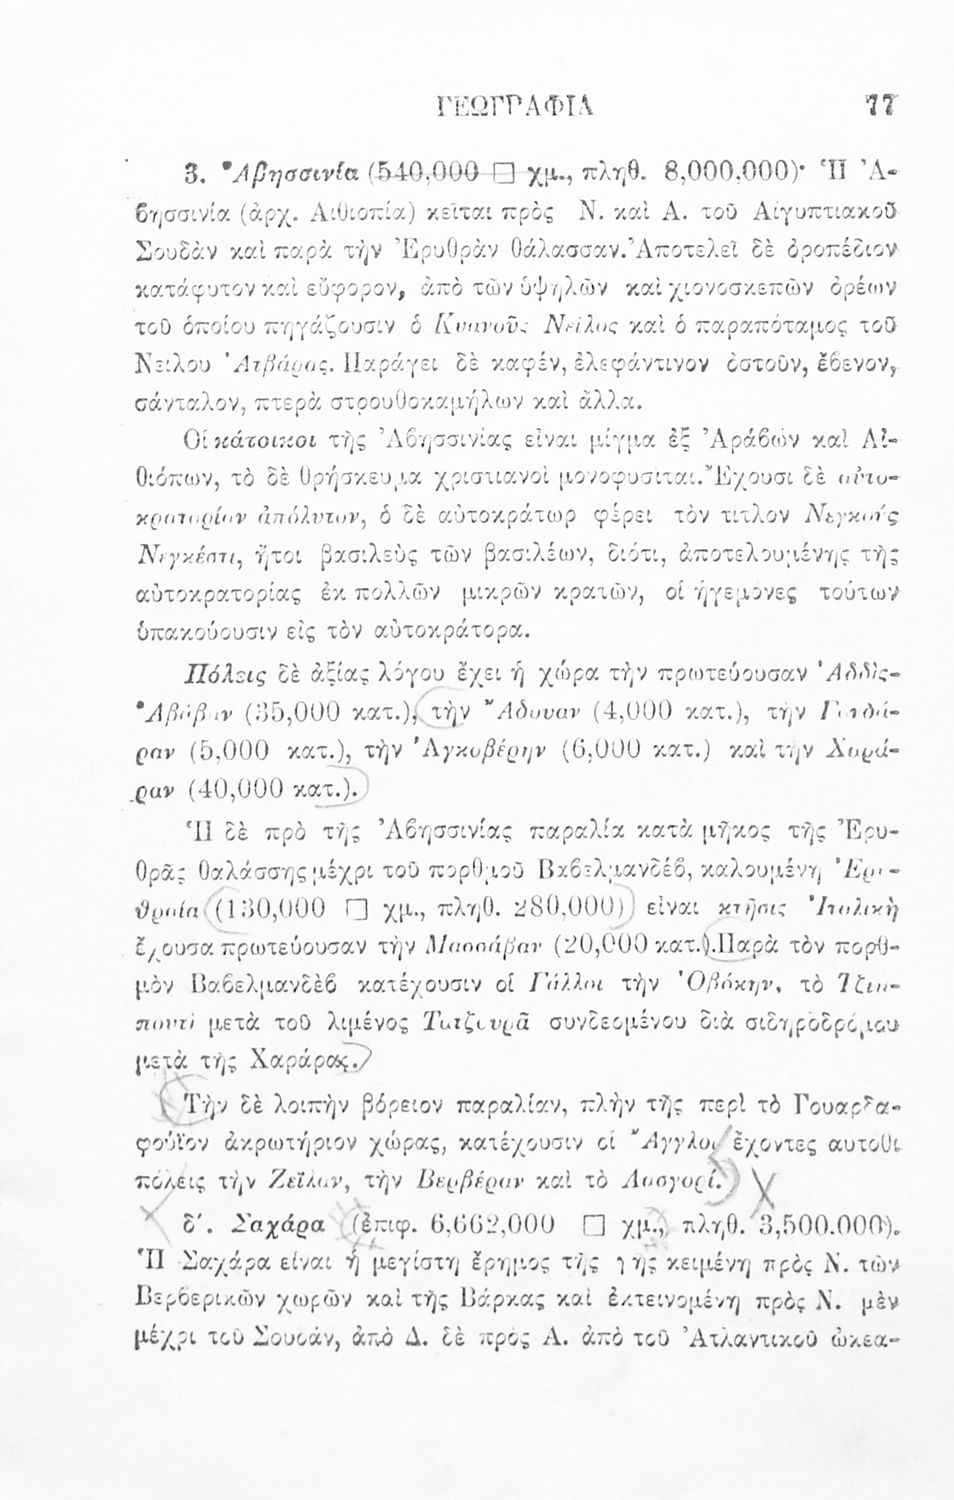 ΓΕΩΓΡΑΦΙΑ 77
3. Ἀβησσινία (540,000 □ χμ., πληθ. 8,000,000)· Ἡ Ἀ-
βησσινία (ἀρχ. Αἰθιοπία) κεῖται πρὸς Ν. καὶ Α. τοῦ Αἰγυπτιακοῦ
Σουδὰν καὶ παρὰ τὴν Ἐρυθρὰν θάλασσαν. Ἀποτελεῖ δὲ ὀροπέδιον
κατάφυτον καὶ εὔφορον, ἀπὸ τῶν ὑψηλῶν καὶ χιονοσκεπῶν ὀρέων
τοῦ ὁποίου πηγάζουσιν ὁ Κυανοῦς Νεῖλος καὶ ὁ παραπόταμος τοῦ
Νείλου Ἀτβάρας. Παράγει δὲ καφέν, ἐλεφάντινον ὀστοῦν, ἔβενον,
σάνταλον, πτερὰ στρουθοκαμήλων καὶ ἄλλα.
Οἱ κάτοικοι τῆς Ἀβησσινίας εἶναι μίγμα ἐξ Ἀράβων καὶ Αἰ-
θιόπων, τὸ δὲ θρήσκευμα χριστιανοὶ μονοφυσῖται. Ἔχουσι δὲ αὐτο-
κρατορίαν ἀπόλυτον, ὁ δὲ αὐτοκράτωρ φέρει τὸν τίτλον Νεγκοὺς
Νεγκέστι, ἤτοι βασιλεὺς τῶν βασιλέων, διότι, ἀποτελουμένης τῆς
αὐτοκρατορίας ἐκ πολλῶν μικρῶν κρατῶν, οἱ ἡγεμόνες τούτων
ὑπακούουσιν εἰς τὸν αὐτοκράτορα.
Πόλεις δὲ ἀξίας λόγου ἔχει ἡ χώρα τὴν πρωτεύουσαν Ἀδδὶς-
Ἀβάβαν (35,000 κατ.), τὴν Ἄδουαν (4,000 κατ.), τὴν Γονδά-
ραν (5,000 κατ.), τὴν Ἀγκοβέρην (6,000 κατ.) καὶ τὴν Χαρά-
ραν (40,000 κατ.).
Ἡ δὲ πρὸ τῆς Ἀβησσινίας παραλία κατὰ μῆκος τῆς Ἐρυ-
θρᾶς θαλάσσης μέχρι τοῦ πορθμοῦ Βαβελμανδέβ, καλουμένη Ἐρυ-
θραία (130,000 □ χμ., πληθ. 280,000) εἶναι κτῆσις Ἰταλικὴ
ἔχουσα πρωτεύουσαν τὴν Μασσάβαν (20,000 κατ.). Παρὰ τὸν πορθ-
μὸν Βαβελμανδὲβ κατέχουσιν οἱ Γάλλοι τὴν Ὀβόκην, τὸ Τζιμ-
πουτὶ μετὰ τοῦ λιμένος Τατζουρᾶ συνδεομένου διὰ σιδηροδρόμου
μετὰ τῆς Χαράρας.
Τὴν δὲ λοιπὴν βόρειον παραλίαν, πλὴν τῆς περὶ τὸ Γουαρδα-
φούϊον ἀκρωτήριον χώρας, κατέχουσιν οἱ Ἄγγλοι ἔχοντες αὐτόθι
πόλεις τὴν Ζεϊλαν, τὴν Βερβέραν καὶ τὸ Λασγορί.
δ΄. Σαχάρα (ἐπιφ. 6,662,000 □ χμ., πληθ. 3,500.000).
Ἡ Σαχάρα εἶναι ἡ μεγίστη ἔρημος τῆς γῆς κειμένη πρὸς Ν. τῶν
Βερβερικῶν χωρῶν καὶ τῆς Βάρκας καὶ ἐκτεινομένη πρὸς Ν. μὲν
μέχρι τοῦ Σουδάν, ἀπὸ Δ. δὲ πρὸς Α. ἀπὸ τοῦ Ἀτλαντικοῦ ὠκεα-